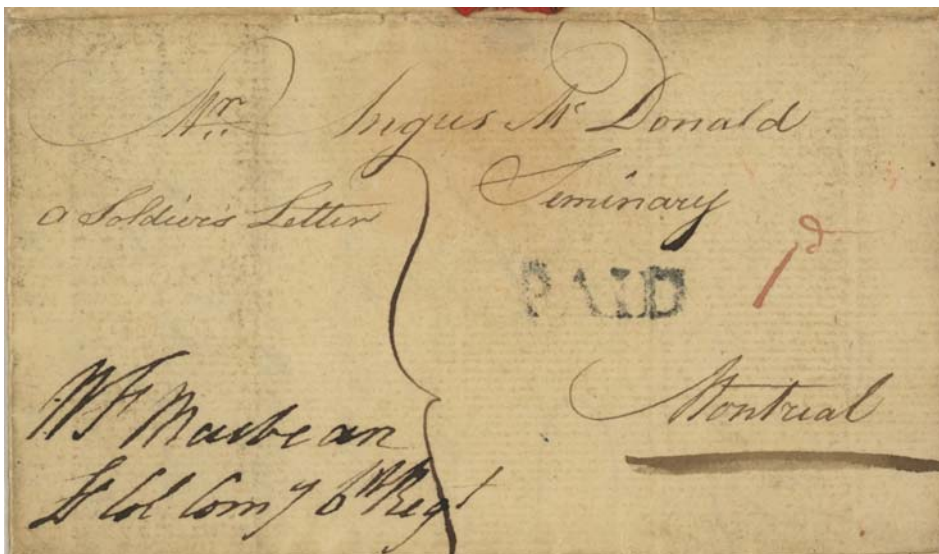 Mr. Angus Mc Donald
Seminary
a Soldier's Letter
PAID
1d
Montreal
Wf Macbean
Lt Col Comg 6th Regt